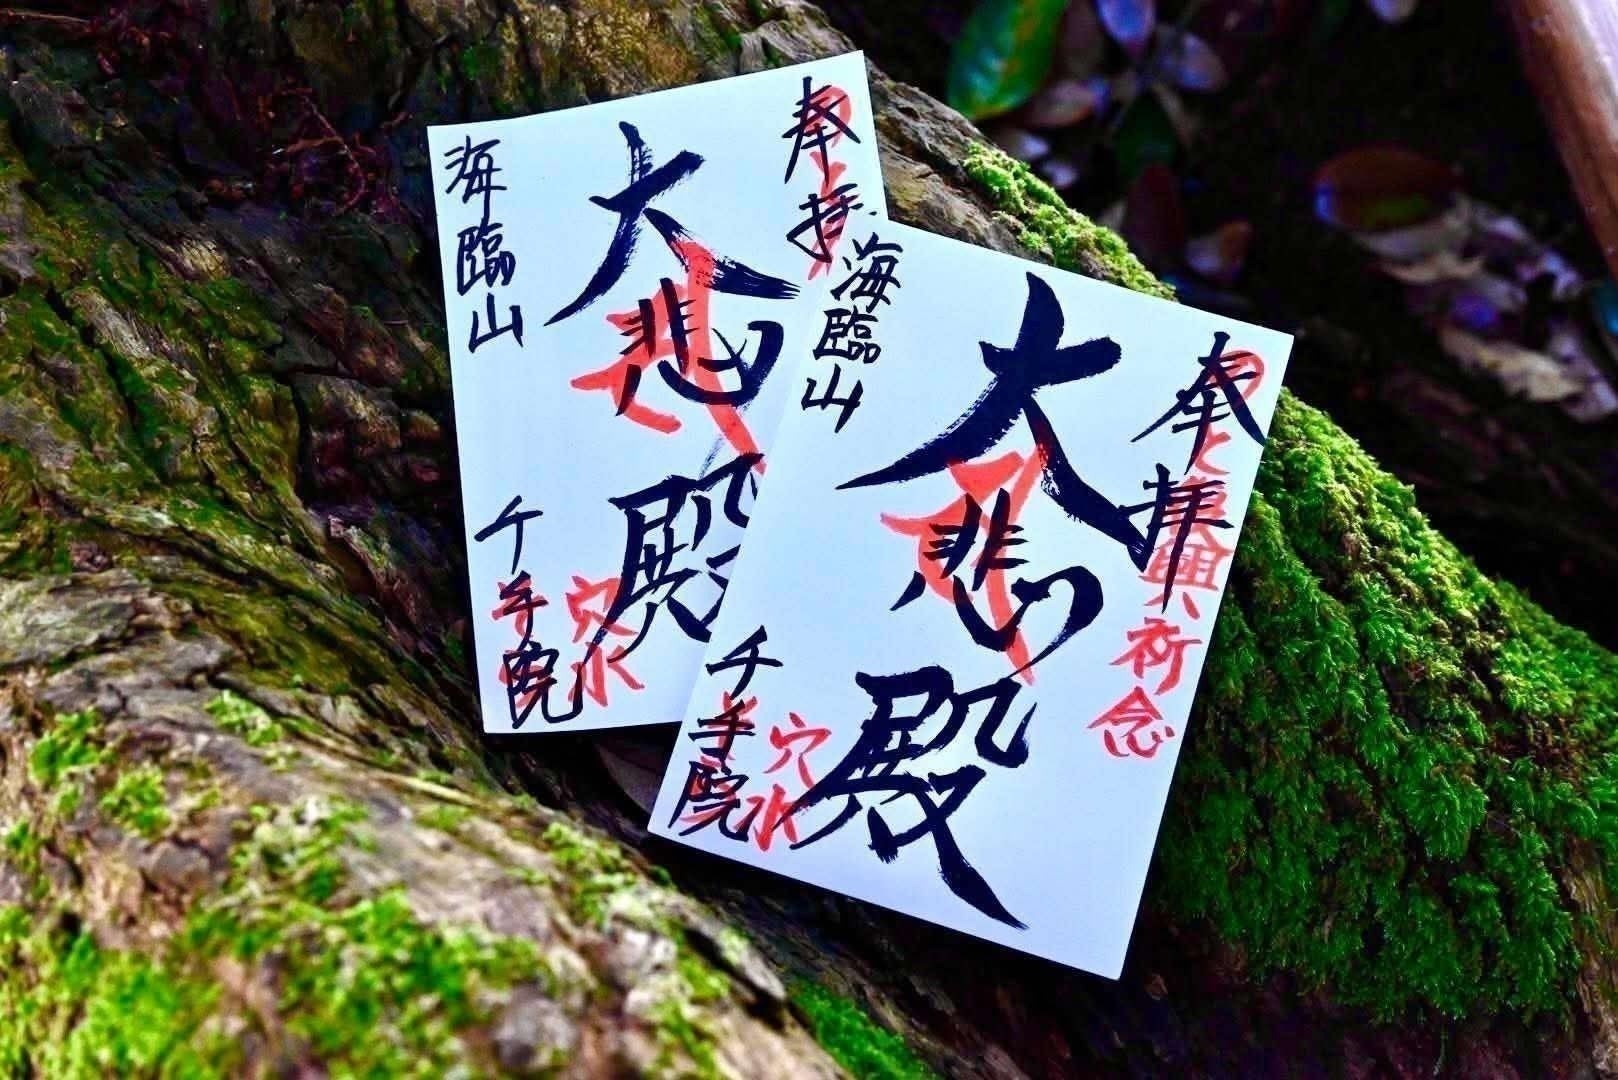 奉拝
大悲殿
穴水
海臨山
千手院
奉拝
のと復興祈念
大悲殿
穴水
海臨山
千手院